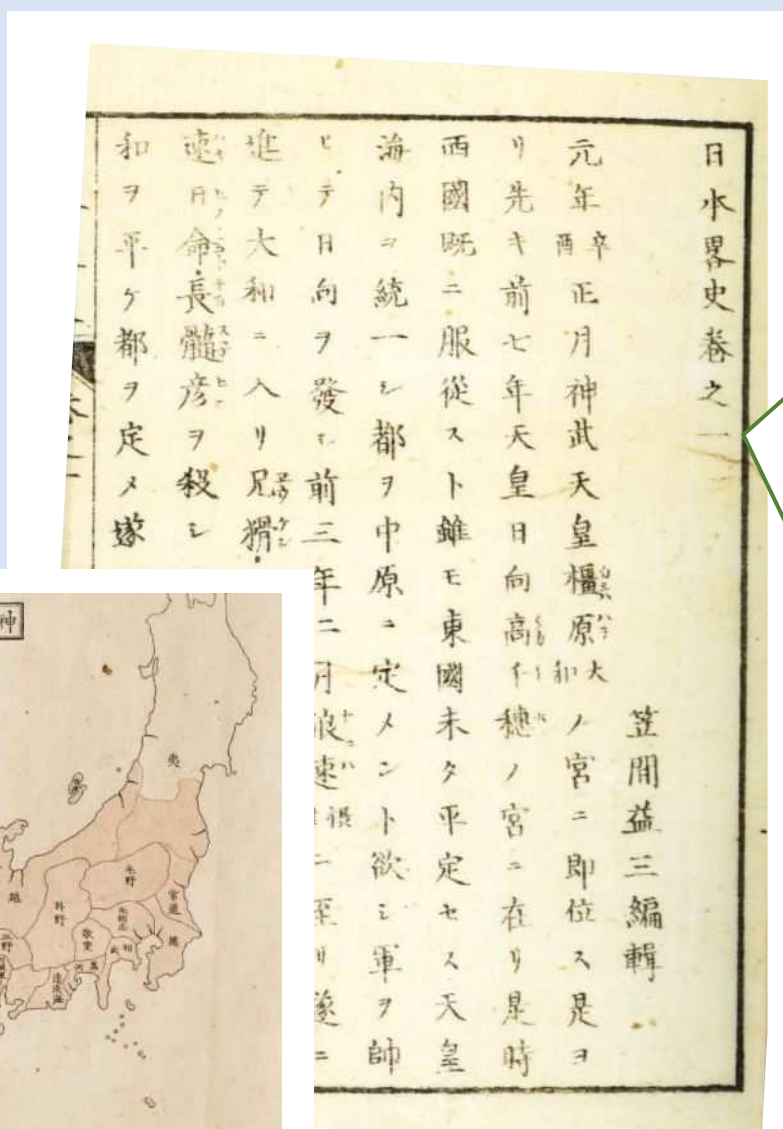 日本畧史卷之一
笠間益三編輯
元年辛酉正月神武天皇橿原大和ノ宮ニ即位ス是ヨ
リ先キ前七年天皇日向高千穗ノ宮ニ在リ是時
西國既ニ服從スト雖モ東國未タ平定セス天皇
海内ヲ統一シ都ヲ中原ニ定メント欲シ軍ヲ帥
ヒテ日向ヲ發シ前三年二月浪速ニ至リ遂ニ
進テ大和ニ入リ兄猾
速日命長髄彦ヲ殺シ
和ヲ平ケ都ヲ定メ遂
神
夷
毛野
常道
科野
三野
相武
遠淡海